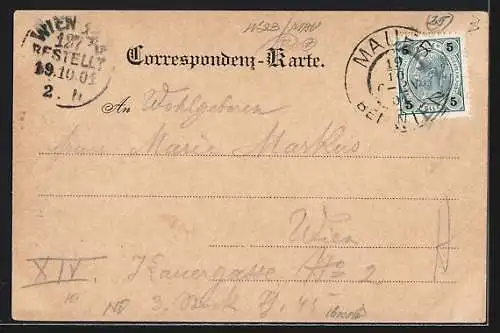 WIEN
127
BESTELLT
19.10.01
2. N
W23/MAU
35
Correspondenz-Karte.
MAUER
19
10
BEI WIEN
5 5
5 5
An Wohlgeboren
Frau Marie Markus
Wien
XIV. Kauergasse No 2
3. Stock Th. 45